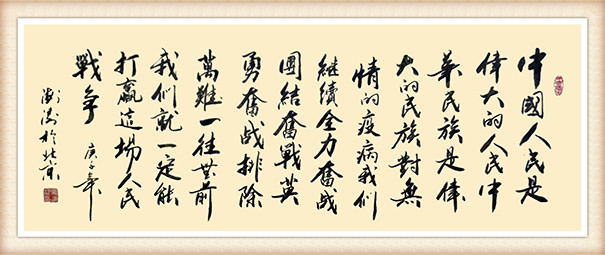 中國人民是
偉大的人民中
華民族是偉
大的民族對無
情的疫病我们
继續全力奮战
團結奮戰英
勇奮战排除
萬難一往無前
我们就一定能
打贏這場人民
戰争 庚子年
於北京